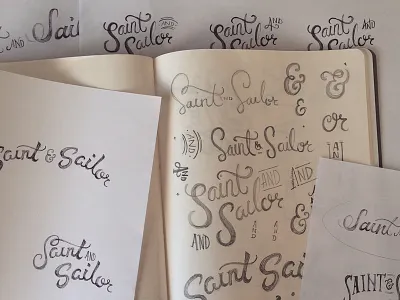 AND Sai
Saint AND
Sailor
Saint AND
Sailor
Saint AND
Sailor
Saint AND Sailor
&
&
&
or
AND
Saint & Sailor
AND
Saint AND AND
Sailor
&
AND
AND
AND
Saint Sai
Saint & Sailor
Saint AND
Sailor
Saint
SAINT &